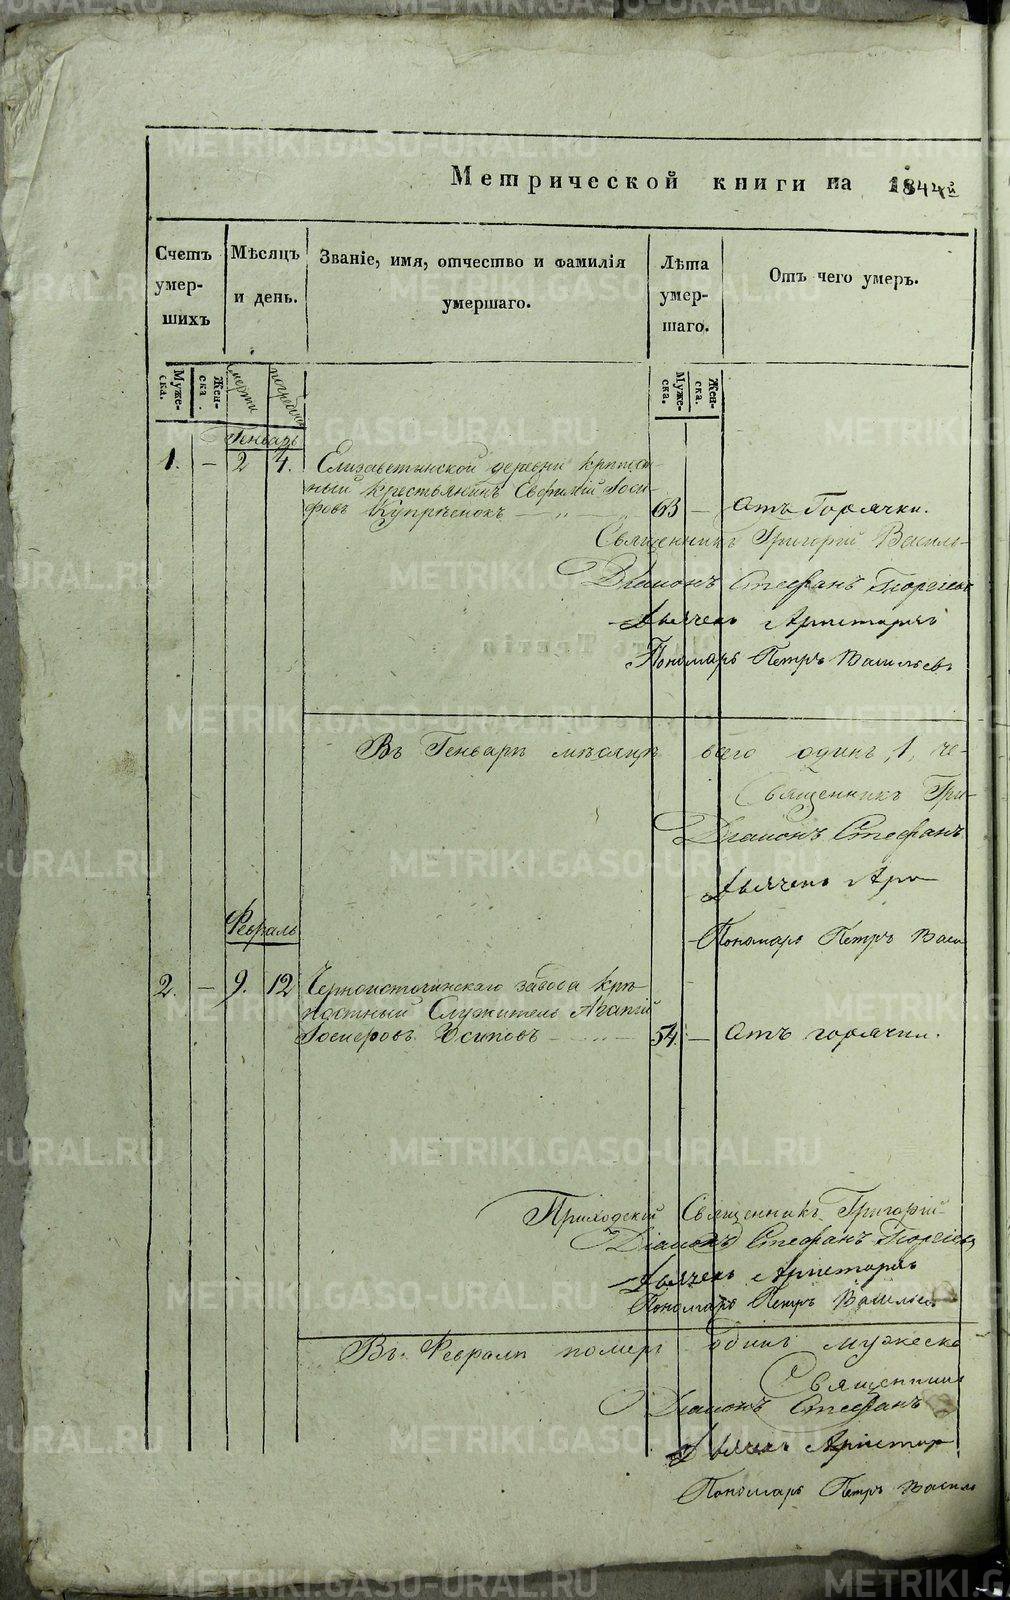 Метрической книги на 1844й
Счетъ умер- шихъ
Мѣсяцъ и день.
Званіе, имя, отчество и фамилія умершаго.
Лѣта умер- шаго.
Отъ чего умеръ.
Муже- ска.
Жен- ска.
смерти
погребенія
Муже- ска.
Жен- ска.
Генварь
1. — 2 4. Елизаветинской деревни крѣпост-
ный крестьянинъ Евфимій Іоси-
фовъ Купрѣенокъ — „ — 63 — Отъ Горячки.
Священникъ Григорій Василь-
Діаконъ Стефанъ Георгіевъ
Дьячекъ Аристархъ
Пономарь Петръ Васильевъ
Въ Генварѣ мѣсяцѣ всего одинъ, 1, че-
Священникъ Гри-
Діаконъ Стефанъ
Дьячекъ Ари
Пономарь Петръ Васи
Февраль
2. — 9. 12 Черноисточинскаго завода крѣ-
постный Служитель
Осиповъ — „ — 54. — Отъ горячки.
Приходскій Священникъ Григорій
Діаконъ Стефанъ Георгіевъ
Дьячекъ Аристархъ
Пономарь Петръ Васильевъ
Въ Февралѣ померъ одинъ мужеска
Священник
Діаконъ Стефанъ
Дьячекъ Аристар
Пономарь Петръ Василь
METRIKI.GASO-URAL.RU